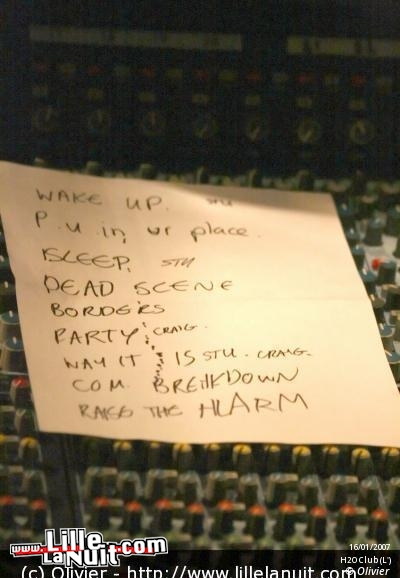 WAKE UP. STU
P.U in ur place.
SLEEP, STU
DEAD SCENE
BORDERS
PARTY: CRAIG.
WAY IT IS STU. CRAIG.
COM. BREAKDOWN
RAISE THE ALARM
www.Lille
LaNuit.com
16/01/2007
H2OClub(L)
© Olivier
(c) Olivier - http://www.lillelanuit.com